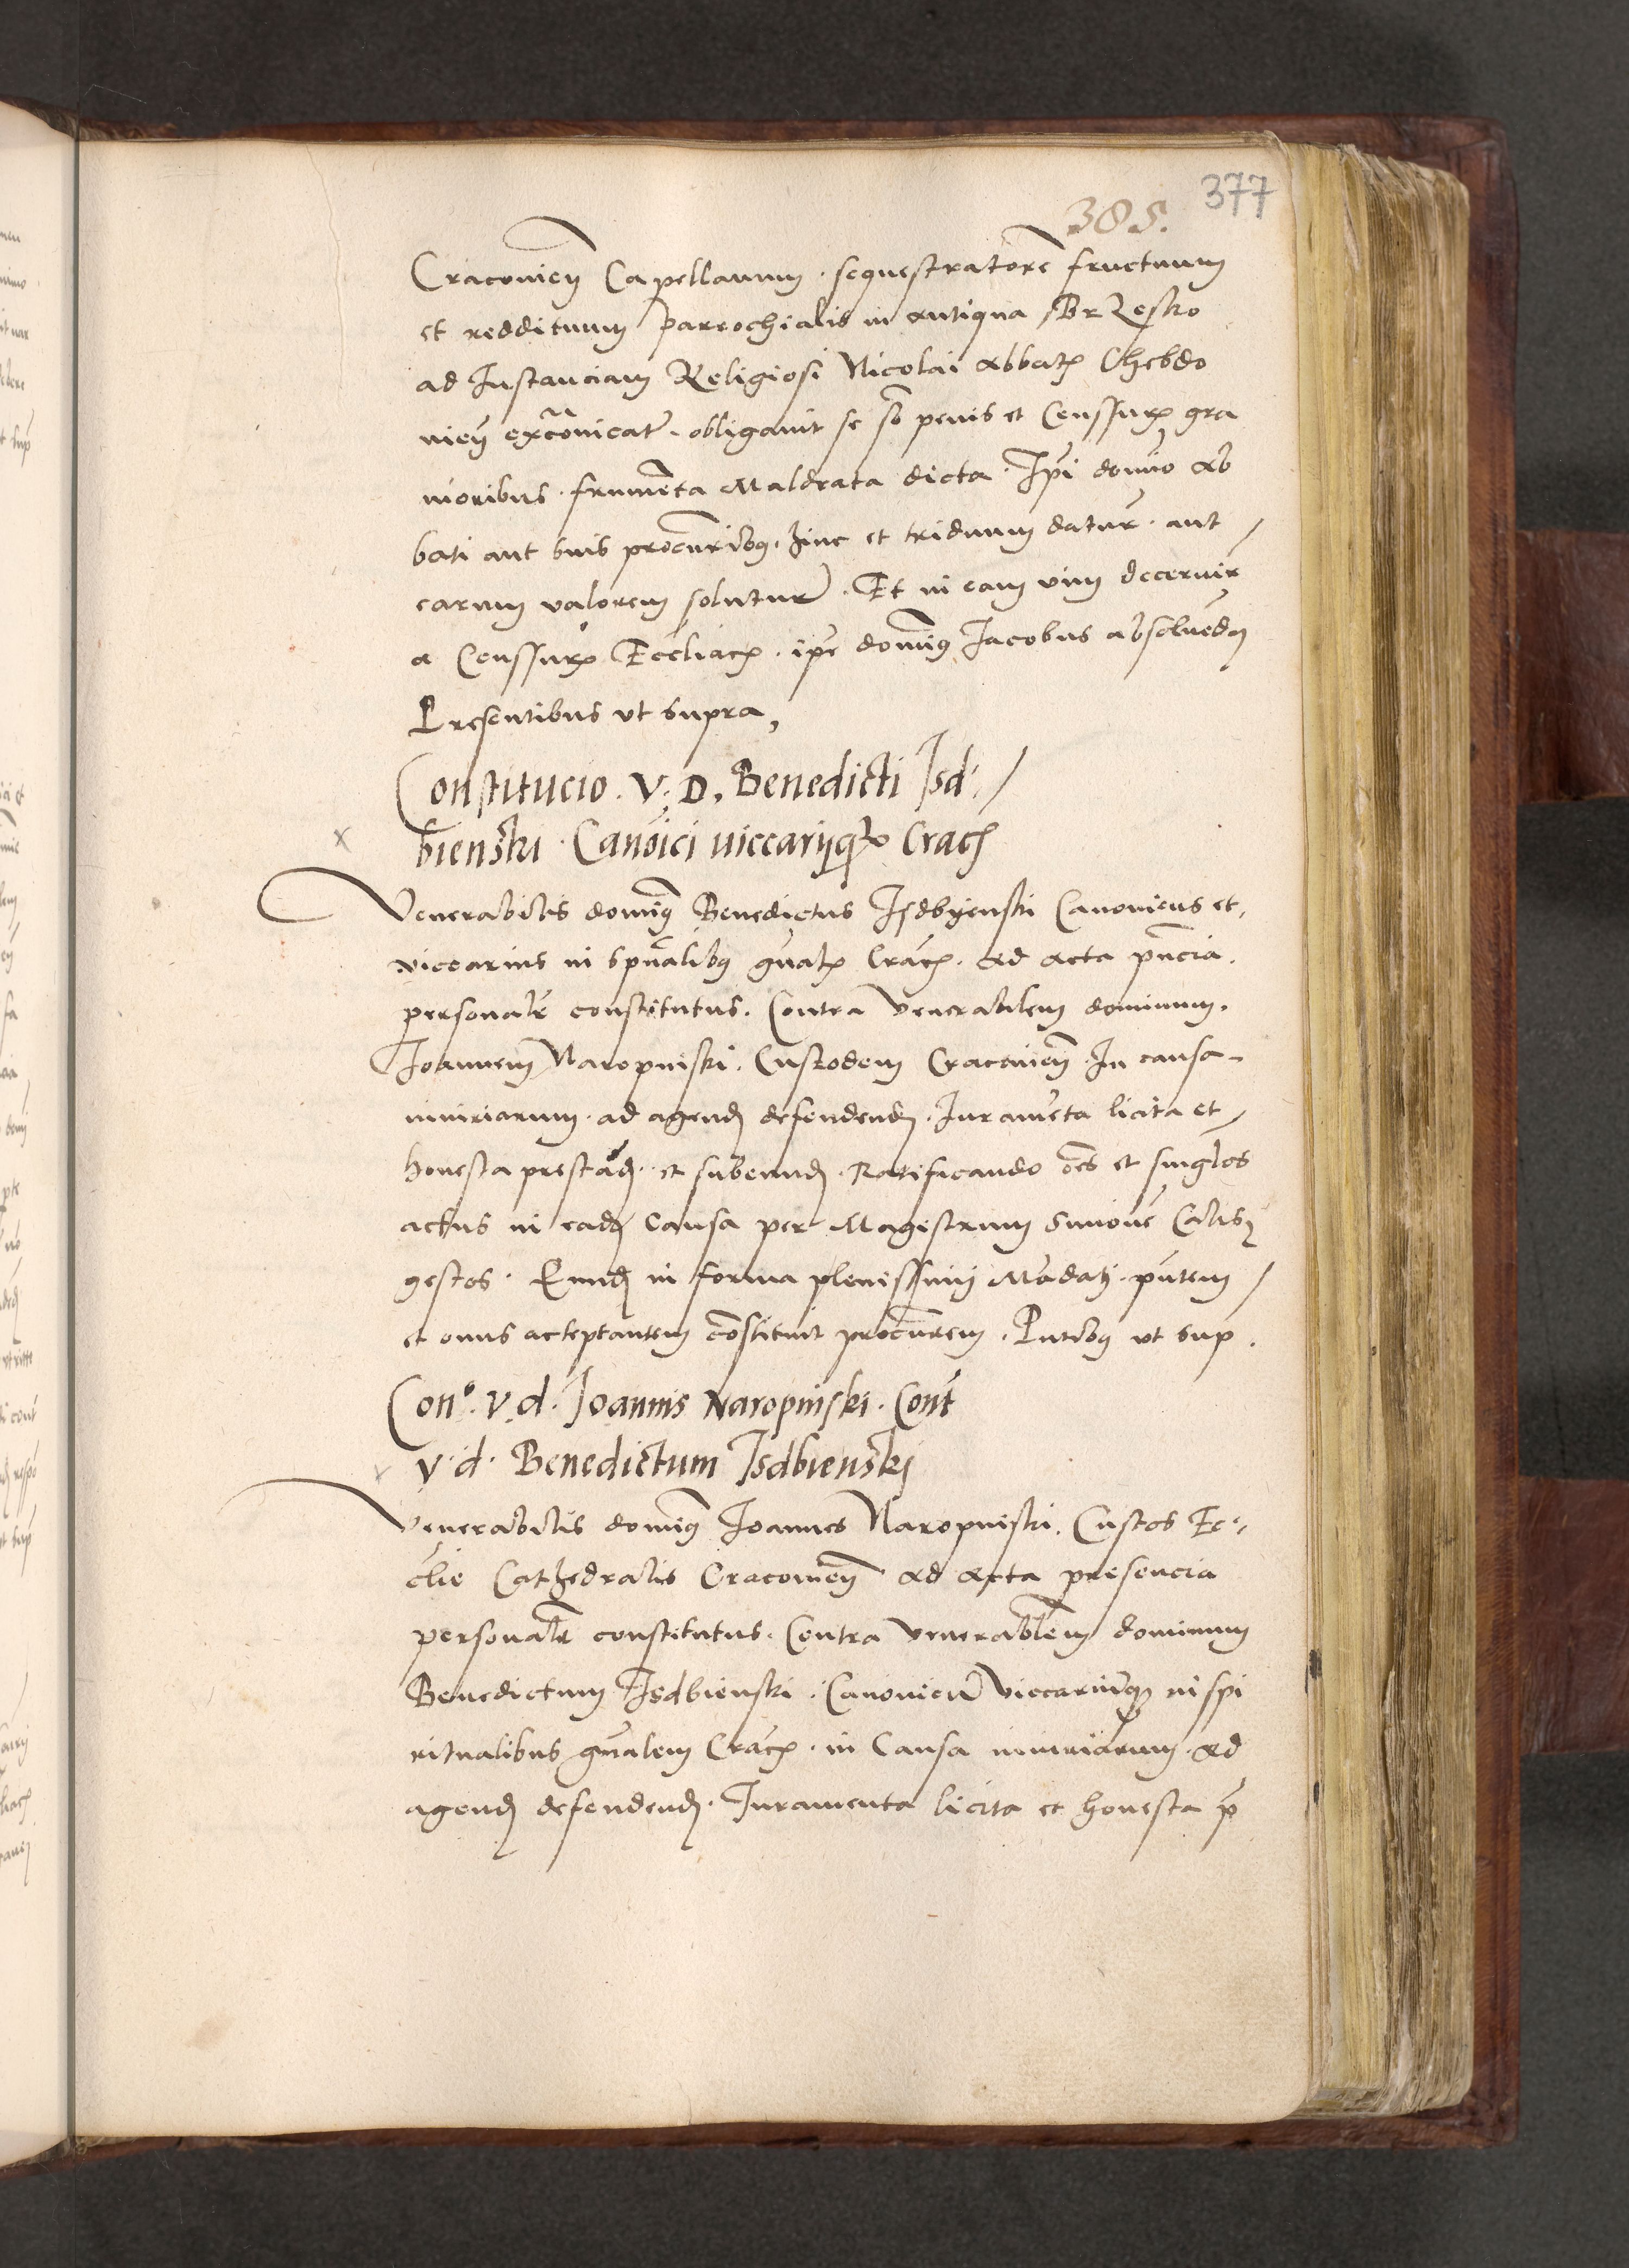 377
385.
Cracovien̄ Capellanum. sequestratorē fructuum
et reddituum parrochialis in antiqua Brzesko
ad Instanciam Religiosi Nicolai abbatꝭ Chebdo
vien̄ excōicatꝰ. obligavit se sō penis et Censsurꝭ gra
vioribus. frumēta Maldrata dicta. Ip̄i domīo ab
bati aut suis procūribꝯ. hinc et triduum daturū. aut
earum valorem soluturū. Et in eam vim decervir̄
a Censsurꝭ Ecc̄liacꝭ. ip̄e domiꝯ Jacobus absolvēdꝯ
Presentibus ut supra,
Constitucio. V. D. Benedicti Isd:/
bienski Canōici viccarijqꝫ Crac̄
Venerabilis domiꝯ Benedictus Isdbyenski Canonicus et
viccarius in spūalibꝯ gn̄alꝭ Crac̄. ad acta pn̄cia.
personalr̄ constitutus. Contra venerabilem dominum.
Joannem Naropinski. Custodem Cracovien̄ In causa
iniuriarum. ad agend̄ defendend̄. Iuramēta licita et
honesta prestād̄. et subeund̄. Ratificando oēs et singlos
actus in ead̄ causa per Magistrum Simonē Calisȝ
gestos. Eund̄ in forma plenissimi Mādati. pn̄tem
et onus acceptantem cōstituit procūrem. Pn̄tibꝯ ut sup.
Conᵒ. v. d. Joannis Naropinski. Cont̄
v. d. Benedictum Isdbienski
Venerabilis domiꝯ Joannes Naropinski. Custos Ec
clie Cathedralis Cracovien̄ ad acta presencia
personalr̄ constitutus. Contra venerablēm dominum
Benedictum Isdbienski. Canonicū viccariūqꝫ in spi
ritualibus gn̄alem Crac̄. in Causa iniuriarum. ad
agend̄ defendend̄. Iuramenta licita et honesta p̄